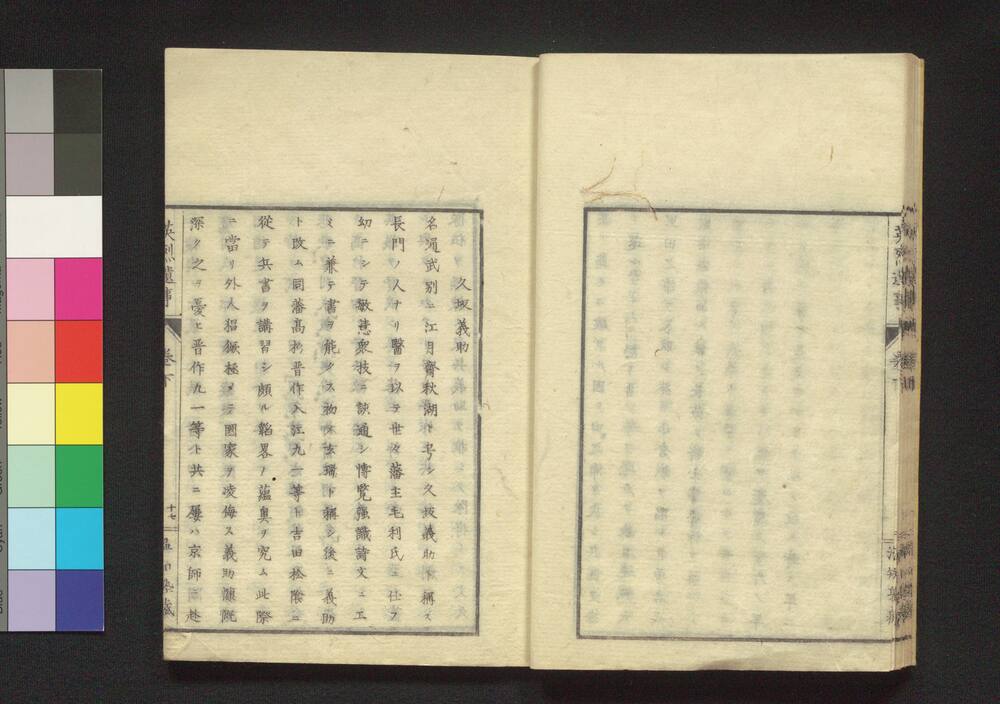 久坂義助
名通武別ニ江月齋秋湖ト号シ久坂義助ト稱ス
長門ノ人ナリ醫ヲ以テ世々藩主毛利氏ニ仕フ
幼ニシテ敏慧衆技ニ該通シ博覧強識詩文ニ工
ミニ兼テ書ヲ能クス初メ玄瑞ト稱シ後ニ義助
ト改ム同藩髙杉晋作入江九一等ト吉田松陰ニ
從テ兵書ヲ講習シ頗ル韜畧ノ蘊奥ヲ究ム此際
ニ當リ外人猖獗極メテ國家ヲ凌侮ス義助慷慨
深ク之ヲ憂ヒ晋作九一等ト共ニ屢ハ京師ニ赴
英烈遺事 卷下 十七